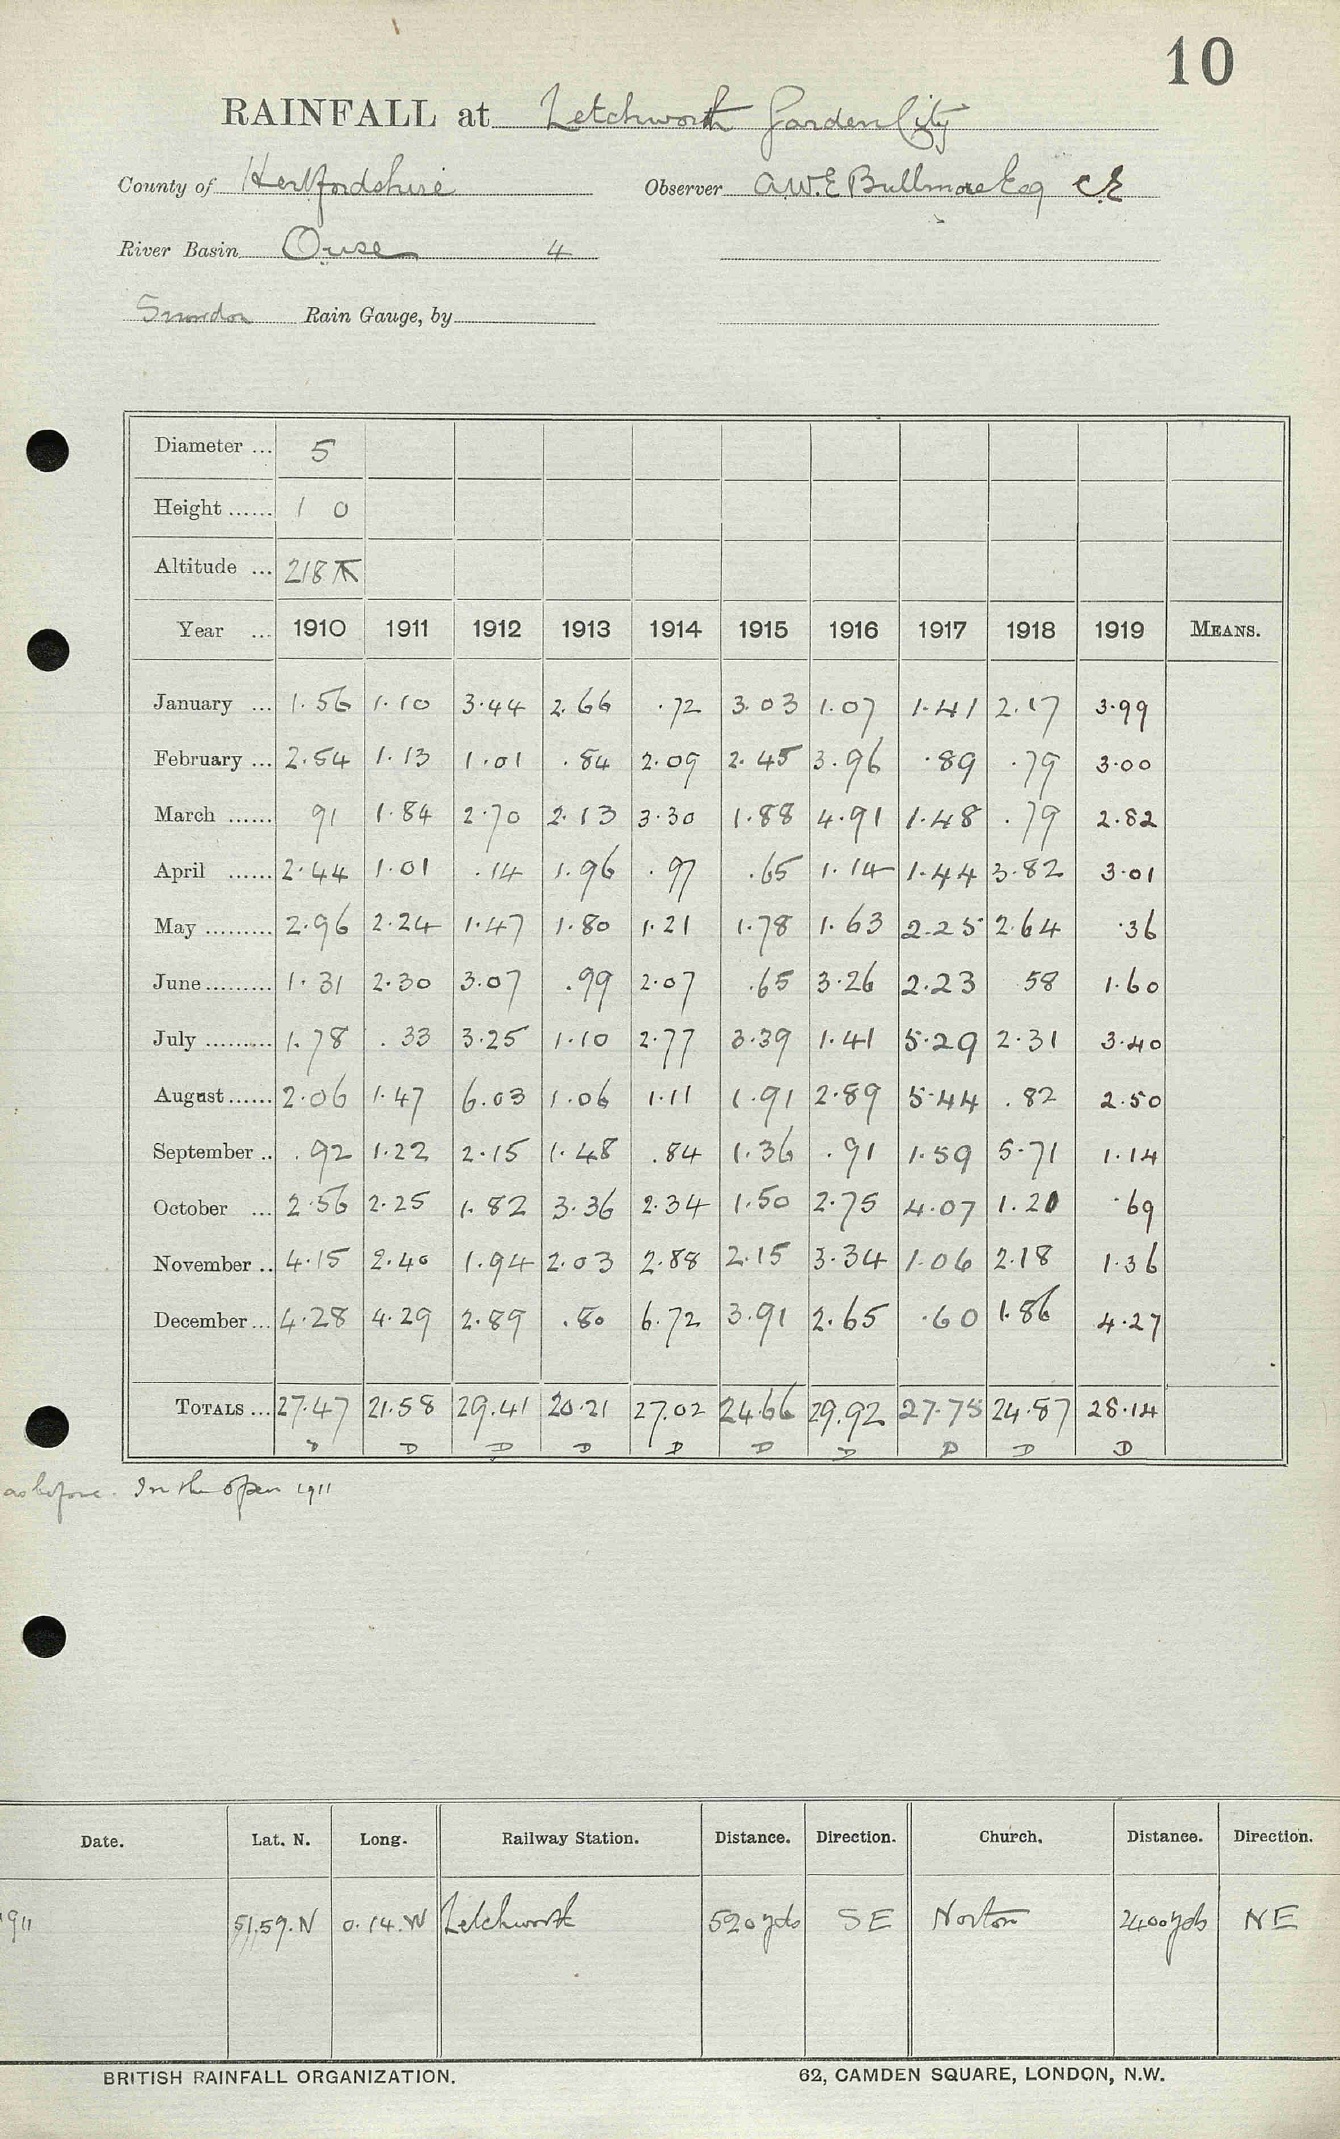 10
RAINFALL at Letchworth Garden City
County of Hertfordshire Observer A.W.E Bullmore Esq C.E
River Basin Ouse 4
Snowdon Rain Gauge, by
Diameter ... 5
Height ...... 1 0
Altitude ... 218
Year ... 1910 1911 1912 1913 1914 1915 1916 1917 1918 1919 MEANS.
January ... 1.56 1.10 3.44 2.66 .72 3.03 1.07 1.41 2.17 3.99
February ... 2.54 1.13 1.01 .84 2.09 2.45 3.96 .89 .79 3.00
March ...... 91 1.84 2.70 2.13 3.30 1.88 4.91 1.48 .79 2.82
April ...... 2.44 1.01 .14 1.96 .97 .65 1.14 1.44 3.82 3.01
May ......... 2.96 2.24 1.47 1.80 1.21 1.78 1.63 2.25 2.64 .36
June ......... 1.31 2.30 3.07 .99 2.07 .65 3.26 2.23 58 1.60
July ......... 1.78 .33 3.25 1.10 2.77 3.39 1.41 5.29 2.31 3.40
August ...... 2.06 1.47 6.03 1.06 1.11 1.91 2.89 5.44 .82 2.50
September .. .92 1.22 2.15 1.48 .84 1.36 .91 1.59 5.71 1.14
October ... 2.56 2.25 1.82 3.36 2.34 1.50 2.75 4.07 1.20 .69
November .. 4.15 2.40 1.94 2.03 2.88 2.15 3.34 1.06 2.18 1.36
December ... 4.28 4.29 2.89 .80 6.72 3.91 2.65 .60 1.86 4.27
TOTALS ... 27.47 21.58 29.41 20.21 27.02 24.66 29.92 27.75 24.87 28.14
D D D D D D D D D D
as before. In the open 1911
Date. Lat. N. Long. Railway Station. Distance. Direction. Church. Distance. Direction.
1911 51.59.N 0.14.W Letchworth 520 yds SE Norton 2400 yds NE
BRITISH RAINFALL ORGANIZATION. 62, CAMDEN SQUARE, LONDON, N.W.